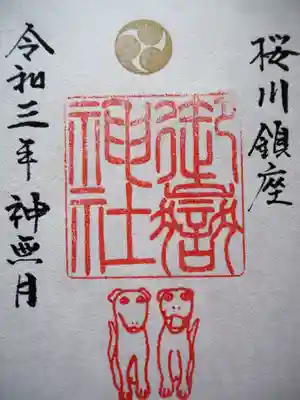 桜川鎮座
御嶽神社
令和三年神無月